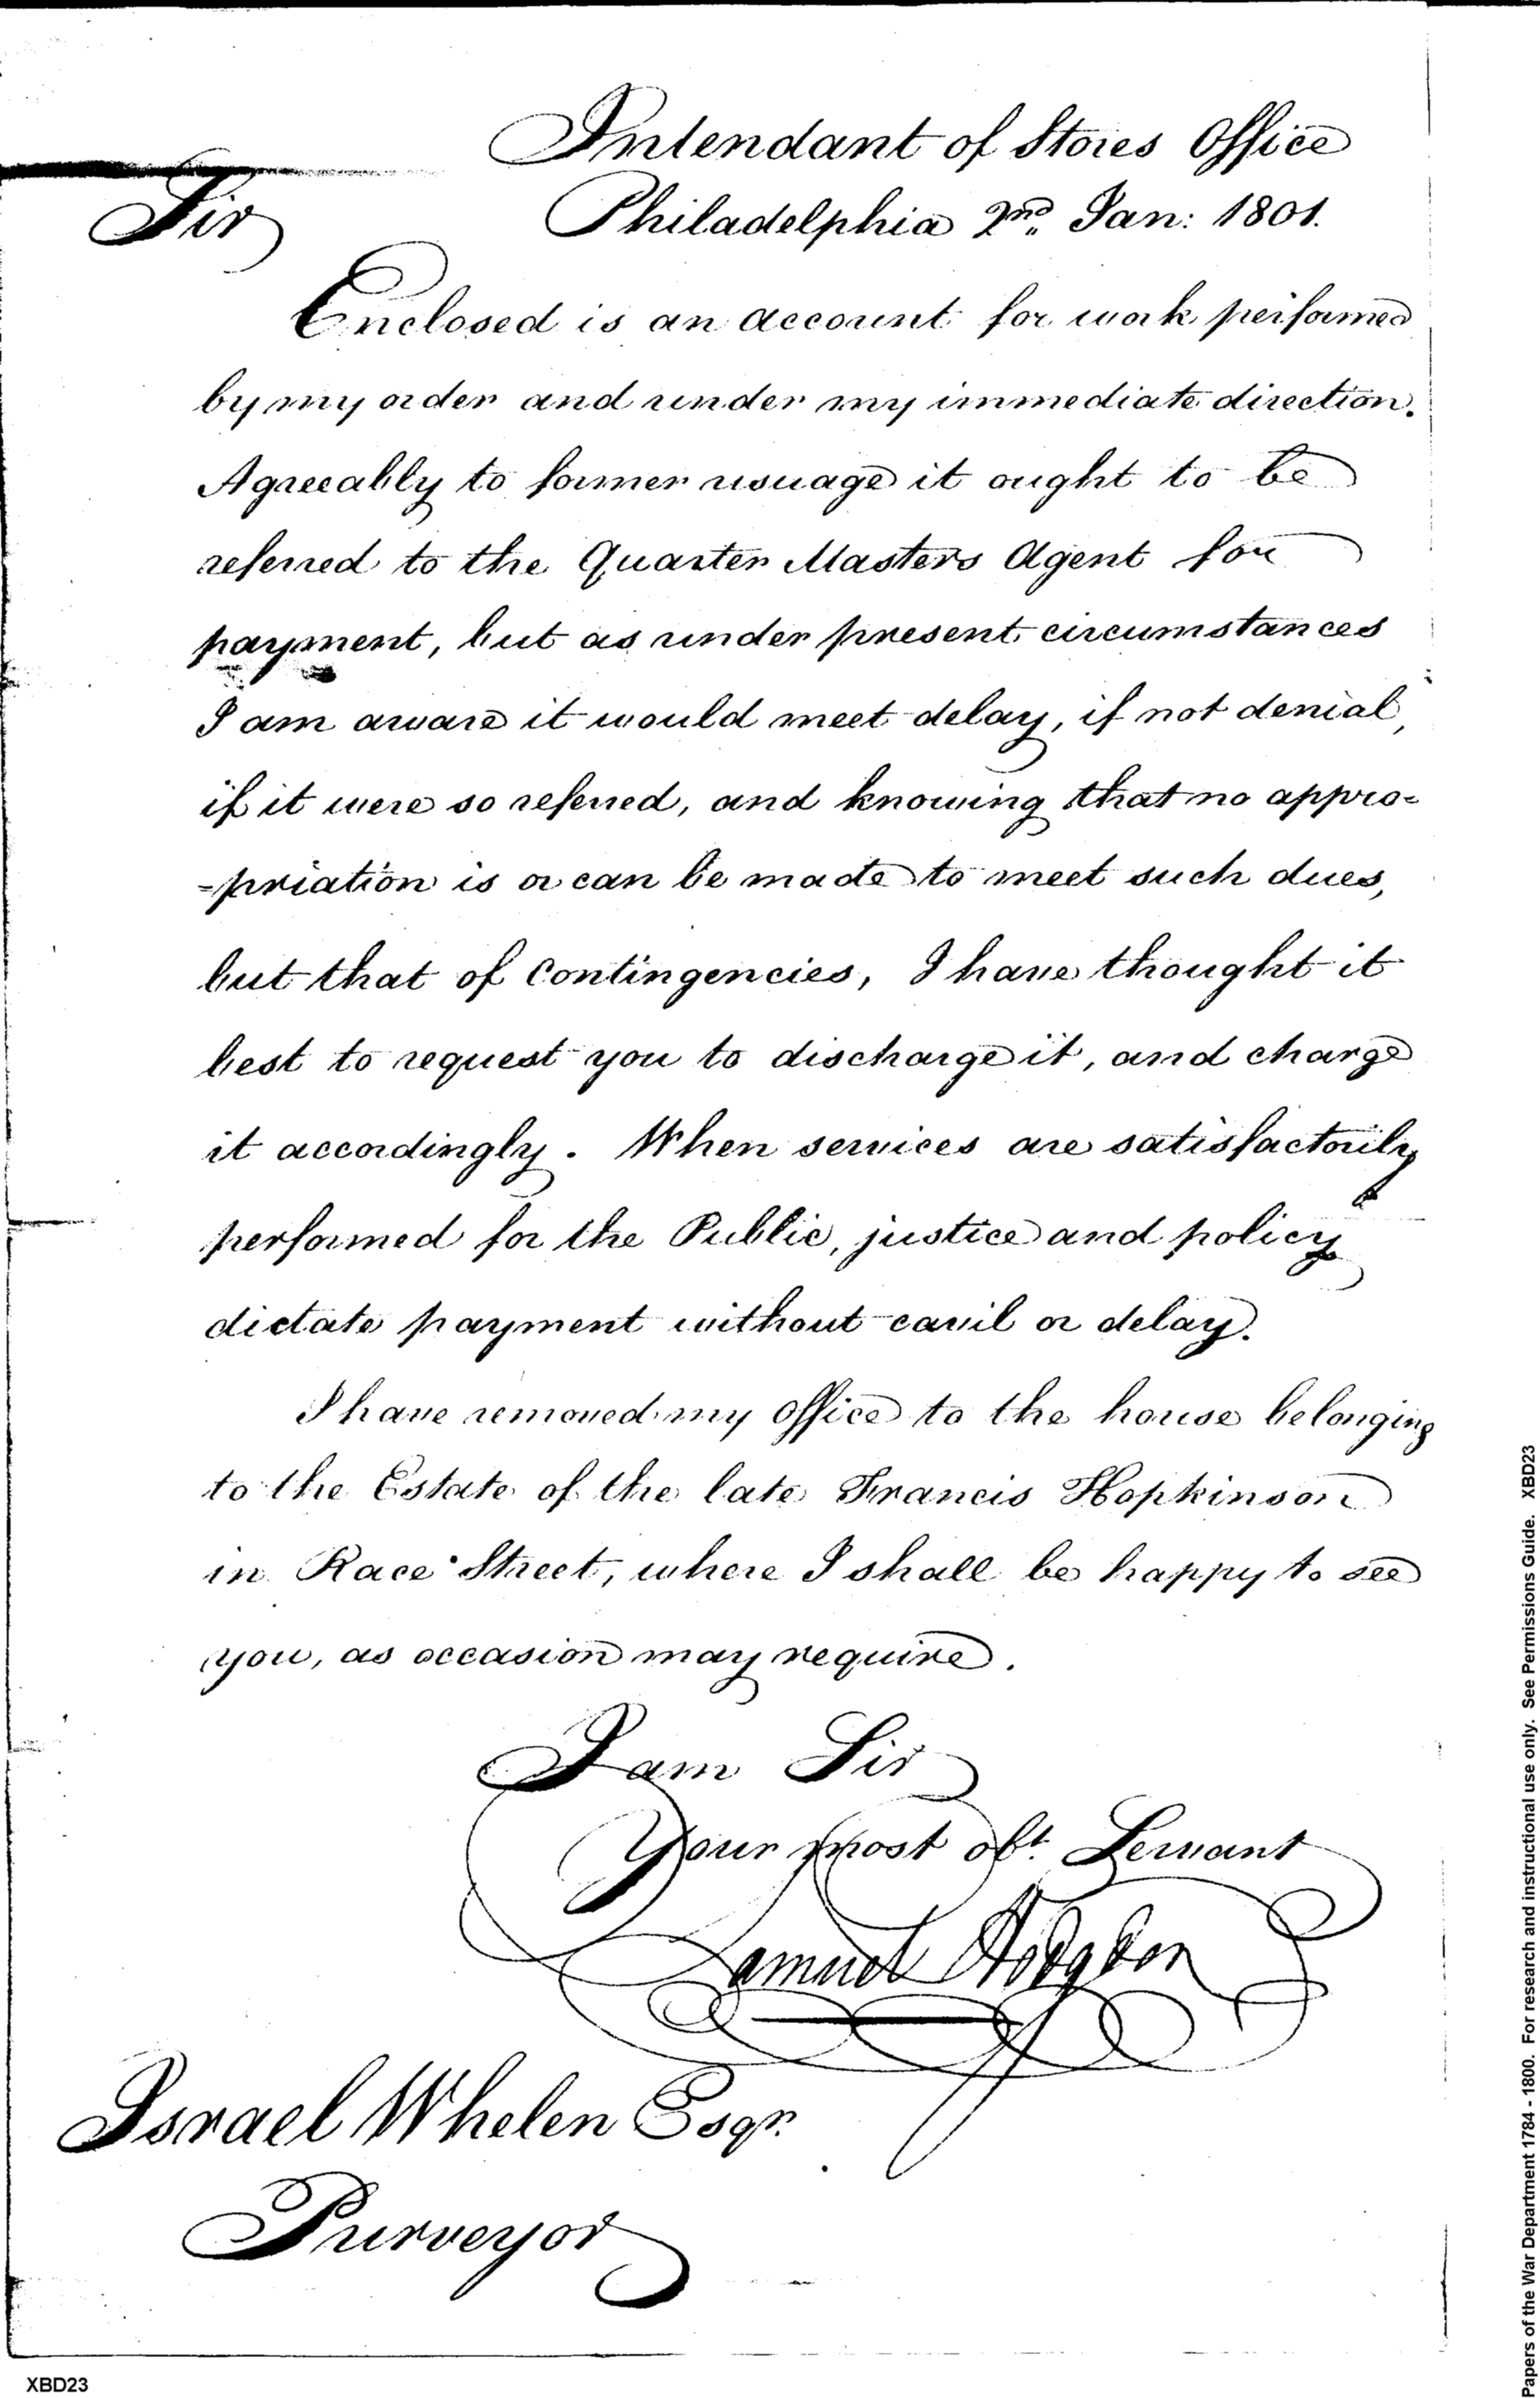 Intendant of Stores Office
Sir
Philadelphia 2nd Jan: 1801.
Enclosed is an account for work performed
by my order and under my immediate direction.
Agreeably to former usuage it ought to be
referred to the Quarter Masters Agent for
payment, but as under present circumstances
I am aware it would meet delay, if not denial,
if it were so referred, and knowing that no appro=
=priation is or can be made to meet such dues,
but that of Contingencies, I have thought it
best to request you to discharge it, and charge
it accordingly. When services are satisfactorily
performed for the Public, justice and policy
dictate payment without cavil or delay.
I have removed my Office to the house belonging
to the Estate of the late Francis Hopkinson
in Race Street, where I shall be happy to see
you, as occasion may require.
I am Sir
Your most obt. Servant
Samuel Hodgdon
Israel Whelen Esqr.
Purveyor
XBD23
Papers of the War Department 1784 - 1800. For research and instructional use only. See Permissions Guide. XBD23